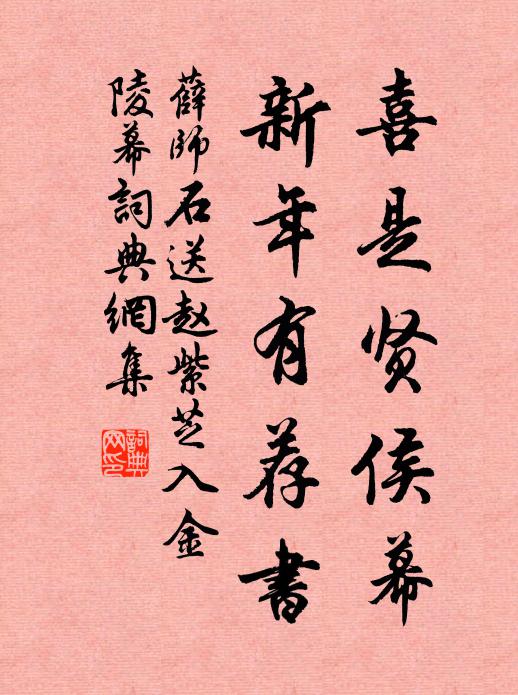 喜是贤侯幕
新年有荐書
薛師石送赵紫芝入金
陵幕詞典網集
詞典
网印